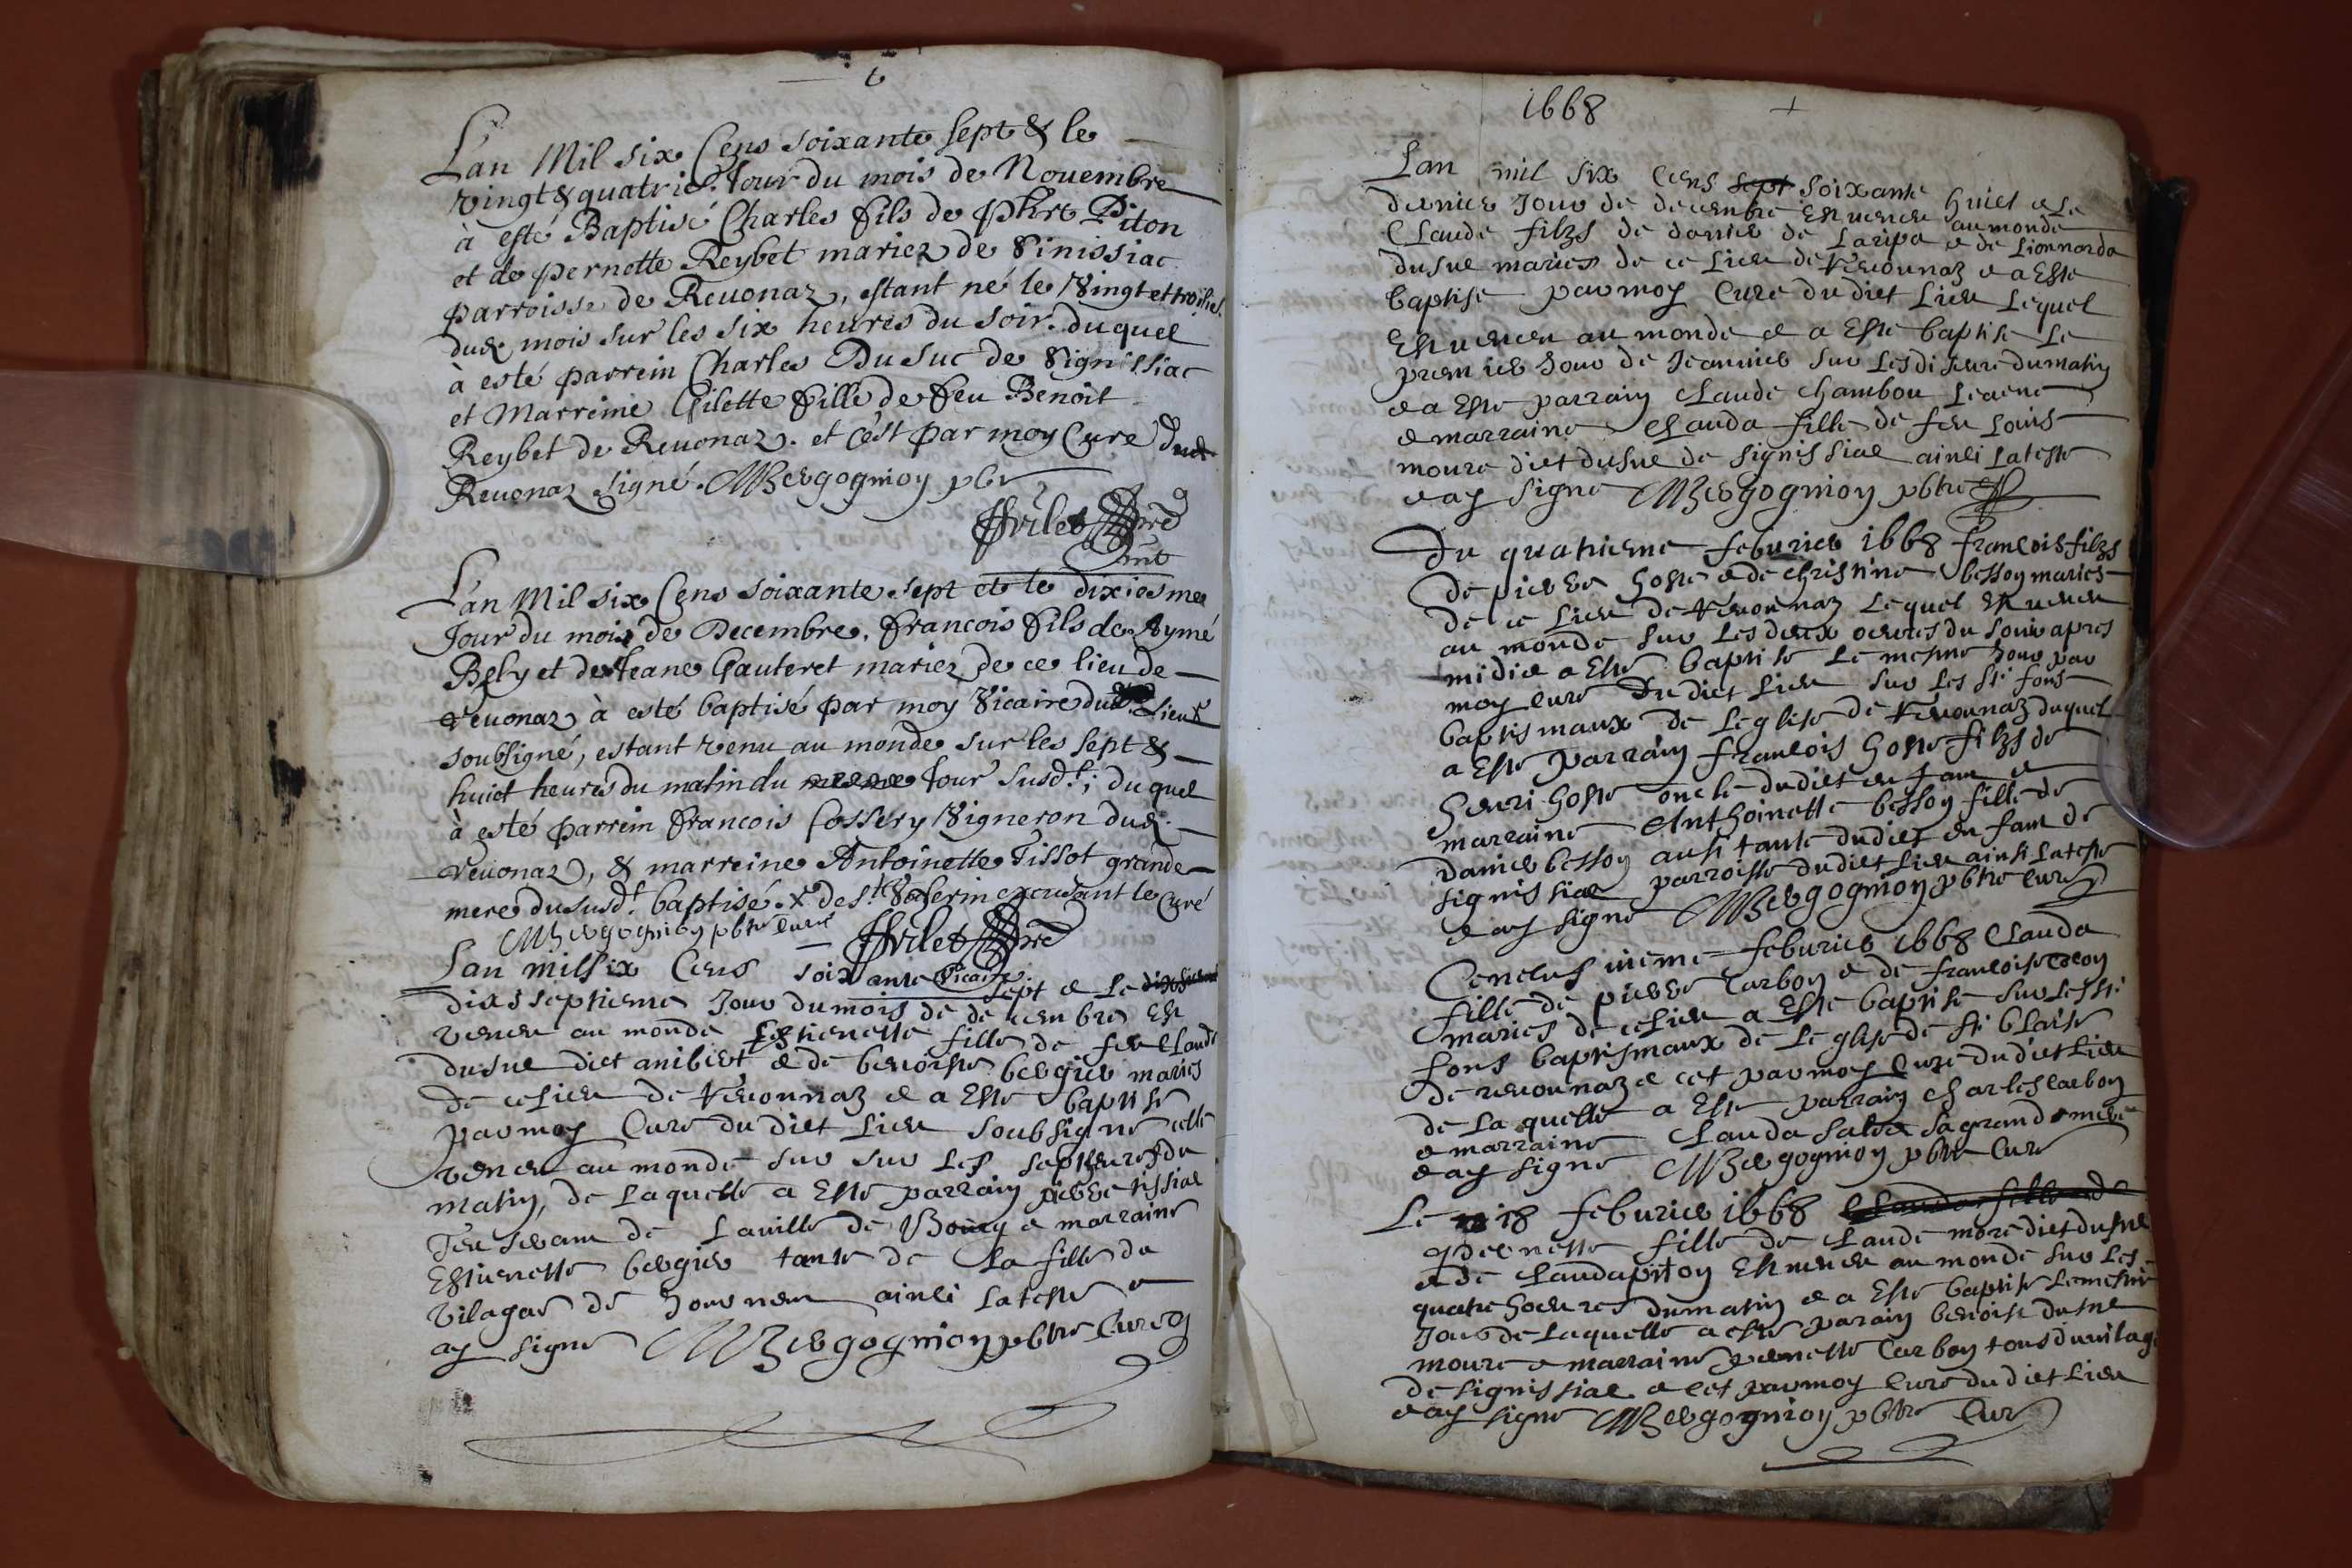 L'an Mil six Cens soixante sept & le
vingt & quatrie. Jour du mois de Nouembre
à esté Baptisé Charles fils de Phirt Piton
et de pernette Reybet mariez de Sinissiac
parroisse de Reuonaz, estant né le Vingt et troisies.
dud mois sur les six heures du soir. duquel
à esté parrein Charles Du Suc de Signissiac
et Marreine Gilette fille de feu Benoit
Reybet de Reuonaz. et c'est par moy Curé dud
Reuonaz signé. MBergognioy pbr
ffrilet
L'an Mil six Cens soixante sept et le dixiesme
Jour du mois de Decembre, francois fils de Aymé
Bely et de Jeane Gauteret mariez de ce lieu de
reuonaz à esté baptisé par moy Vicaire dud lieu
soubsigné, estant venu au monde sur les sept &
huict heures du matin du mesme Jour susd.t; du quel
à esté parrein francois Cossery Vigneron dud.
reuonaz, & marreine Antoinette Tissot grande
mere du susd.t baptisé. de s.t Valerin le Curé
MBergognioy pbtre Curé
ffrilet
Vicaire
Lan mil six Cens soixante sept e le
dix septieme Jour du mois de decenbre Est
venue au monde Estienette fille de feu Claude
dusuc dict anibert e de benoiste bergier maries
de ce lieu de reuonnaz e a Este baptise
par moy Cure du dict Lieu soubsigne celle
venue au monde sur sur Les sept heures du
matin, de Laquelle a Este parrain pierre tissiac
de Lauille de Bourg e marraine
Estienette bergier tante de La fille du
vilage de Journeu ainsi Lateste e
ay signe MBergognioy pbtre Cure
1668
Lan mil six Cens sept soixante huict e Le
dernier Jour de decenbre Est venu au monde
Claude filzs de daniel de Laripa e de Lionnarda
dusuc maries de ce Lieu de Reuounaz e a Este
baptise par moy Cure du dict Lieu Lequel
Est venu au monde e a Este baptise Le
premier Jour de Jeanuier sur Les di heure du matin
e a Este parrain Claude Chambou
e marraine Clauda fille de feu Louis
moure dict dusuc de signissiac ainsi Lateste
e ay signe MBergognioy pbtre
Du quatrieme feburier 1668 francois filzs
de pierre goste e de christine besson maries
de ce Lieu de Reuounaz Lequel Est venu
au monde sur Les deux oeures du soir apres
midi e a Este baptise Le mesme Jour par
moy Cure du dict Lieu sur Les st fons
baptismaux de Leglise de Reuounaz duquel
a Este parrain francois goste filzs de
henri goste oncle du dict enfant e
marraine Anthoinette besson fille de
daniel besson aussi tante du dict enfant de
signissiac parroisse du dict Lieu ainsi Lateste
e ay signe MBergognioy pbtre Cure
feburier 1668 Clauda
fille de pierre Carbon e de francoise
maries de ce Lieu a Este baptise sur Les st
fons baptismaux de Leglise de st blaise
de reuounaz e cet par moy Cure du dict Lieu
de La quelle a Este parrain Charles Carbon
e marraine Clauda sa grand mere
e ay signe MBergognioy pbtre Cure
Le 18 feburier 1668
pernette fille de Claude more dict dusuc
e de Clauda piton Est venue au monde sur Les
quatre hoeures du matin e a Este baptise Le mesme
Jour de Laquelle a este parain benoist dusuc
moure e marraine pernette Carbon tous du vilage
de signissiac e cet par moy Cure du dict Lieu
e ay signe MBergognioy pbtre Cure